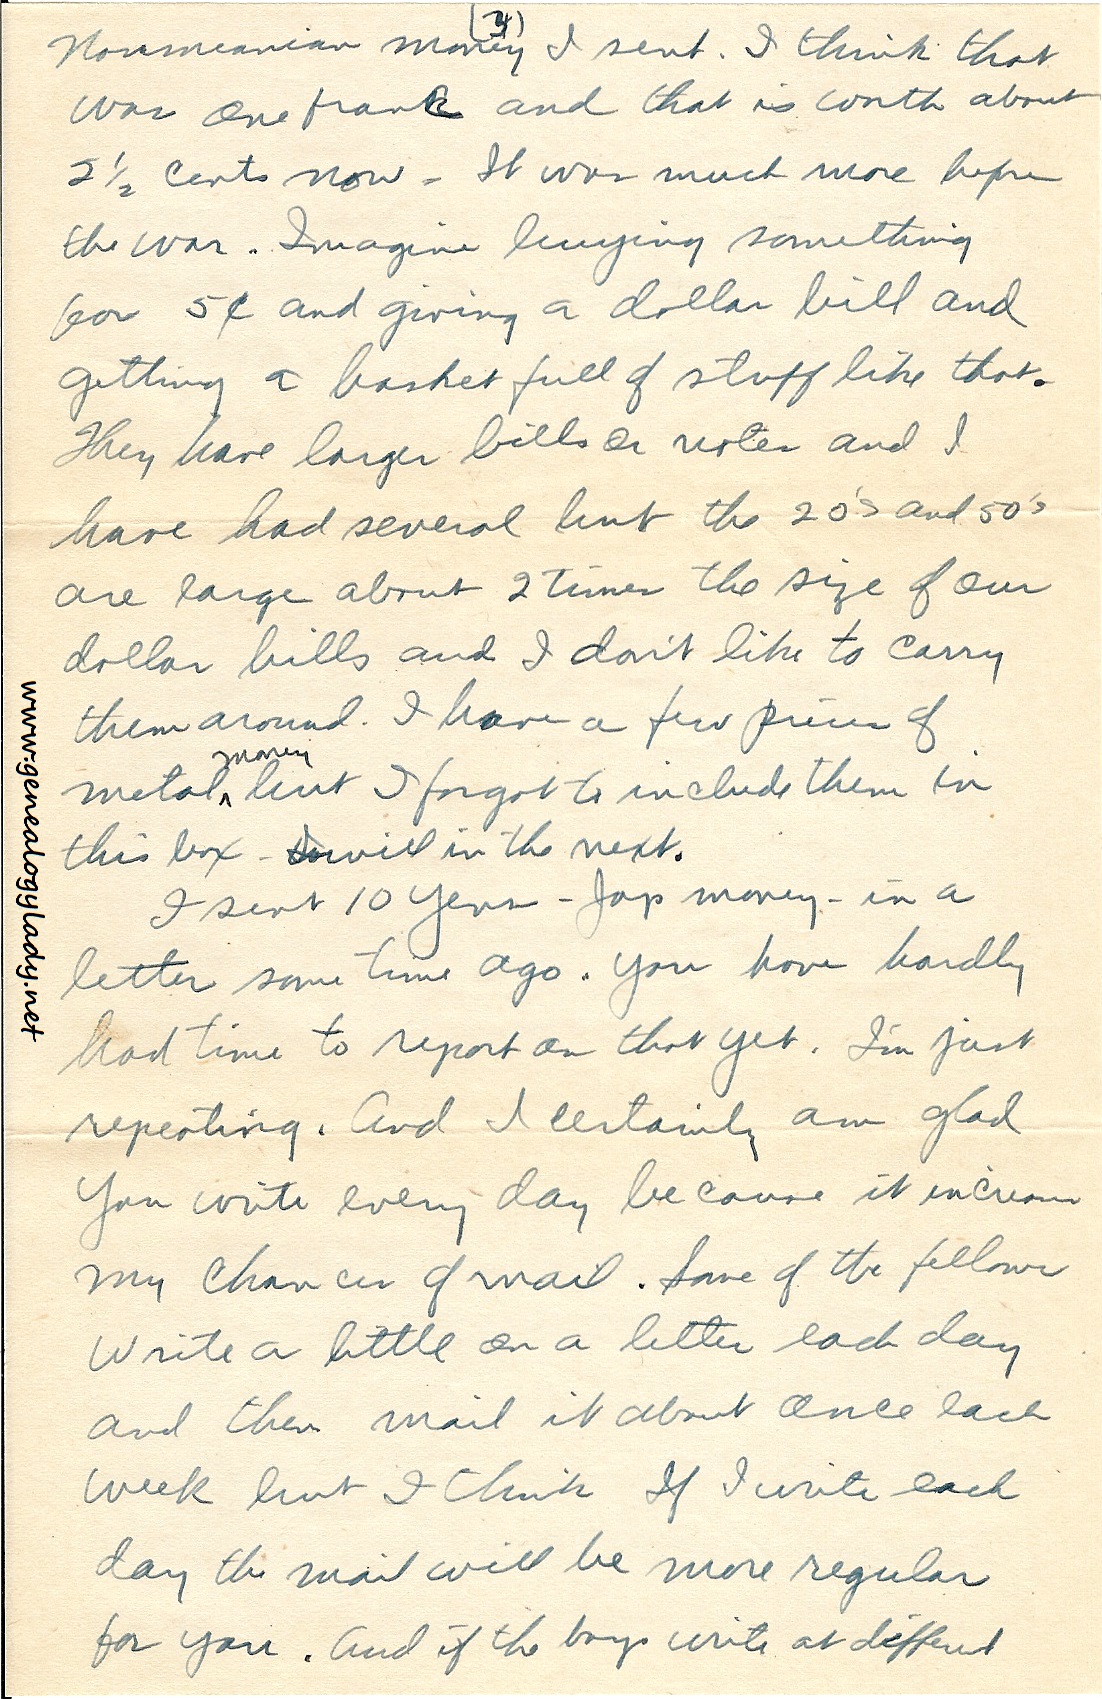 (3)
Noumeanian money I sent. I think that
was one frank and that is worth about
2½ cents now - It was much more before
the war. Imagine buying something
for 5¢ and giving a dollar bill and
getting a basket full of stuff like that.
They have larger bills or notes and I
have had several but the 20's and 50's
are large about 2 times the size of our
dollar bills and I don't like to carry
them around. I have a few pieces of
metal money but I forgot to include them in
this box - will in the next.
I sent 10 Yens - Jap money - in a
letter some time ago. You have hardly
had time to report on that yet. I'm just
repeating. And I certainly am glad
you write every day because it increases
my chances of mail. Some of the fellows
write a little on a letter each day
and then mail it about once each
week but I think If I write each
day the mail will be more regular
for you. And if the boys write at different
www.genealogylady.net